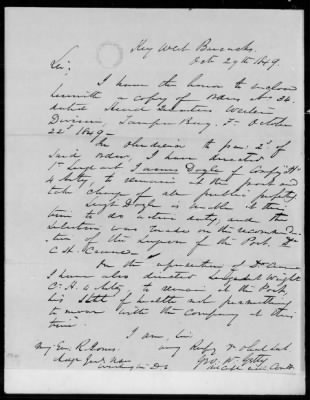 Key West Barracks.
Oct. 29th 1849.
Sir;
I have the honor to enclose
herewith a copy of Orders No. 34.
dated Head Quarters Western
Division, Tampa Bay, F. October
22d 1849.
In obedience to par: 2d of
said Order, I have directed
1st Sergeant James Doyle of Comp'y "H"
4 Arty, to remain at this post and
take charge of all public property.
Sergt Doyle is unable at this
time to do active duty, and the
selection was made on the recommenda-
tion of the Surgeon of the Post, Dr.
C. H.
On the of Dr.
I have also directed Wright
Co. H. 4 Arty, to remain at the Post,
his state of health not permitting
to move with the company at this
time.
I am, Sir,
very Resp'y Yr. Obed. Svt
Geo. W. Getty
Maj. Gen. R. Jones
Adjt. Genl. USA
Washington D.C.